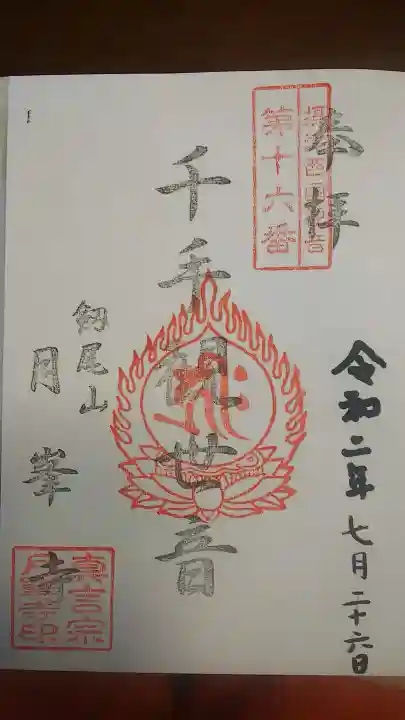 奉拝
第十六番
令和二年七月二十六日
千手観世音
剱尾山
月峯寺
真言宗
月峯寺印